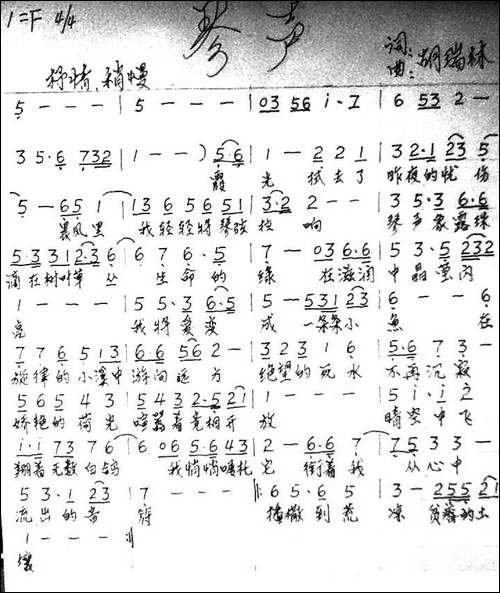 1=F 4/4 琴声
词: 曲: 胡瑞林
抒情、稍慢
5 - - - | 5 - - - | 03 56 i· 7 | 6 53 2 -
3 5·6 732 | 1 - - ) 56 | 1 - 2 2 1 | 3 2·1 23 5
霞 光 拭去了 昨夜的忧伤
5 - 65 1 | 13 6 56 51 | 3·2 2 - - | 3 5·3 6·6
晨风里 我轻轻将琴弦 拨 响 琴声象露珠
5·3 31 2·3 6 | 6 7 6·5 | 7 - 03 6·6 | 5 3·5 233
滴在树叶草丛 生命的 绿 在滋润 中晶莹闪
1 - - - | 5 5·3 6·5 | 5 - 531 23 | 6 - - 6
亮 我将爱变 成 一条条小 鱼 在
7 7 6 5 13 | 6·6 56 2 - | 3 2 3 1 6 | 5·6 7 3 -
旋律的小溪中 游向远方 绝望的死水 不再沉寂
5 6 5 4 3 | 5 4 3 2·5 21 | 1 - - - | 5 i· i 2
娇艳的荷花 喧嚣着竞相开 放 晴空中飞
i·i 73 7 6 | 6 06 5·6 43 | 2 - 6·6 7 | 75 3 3 -
翔着无数白鸽 我悄悄嘱托 它 衔着我 从心中
5 3·1 23 | 7 - - - |: 6 5·6 5 | 3 - 255 21
流出的音 符 播撒到荒 凉 贫瘠的土
1 - - - :||
壤